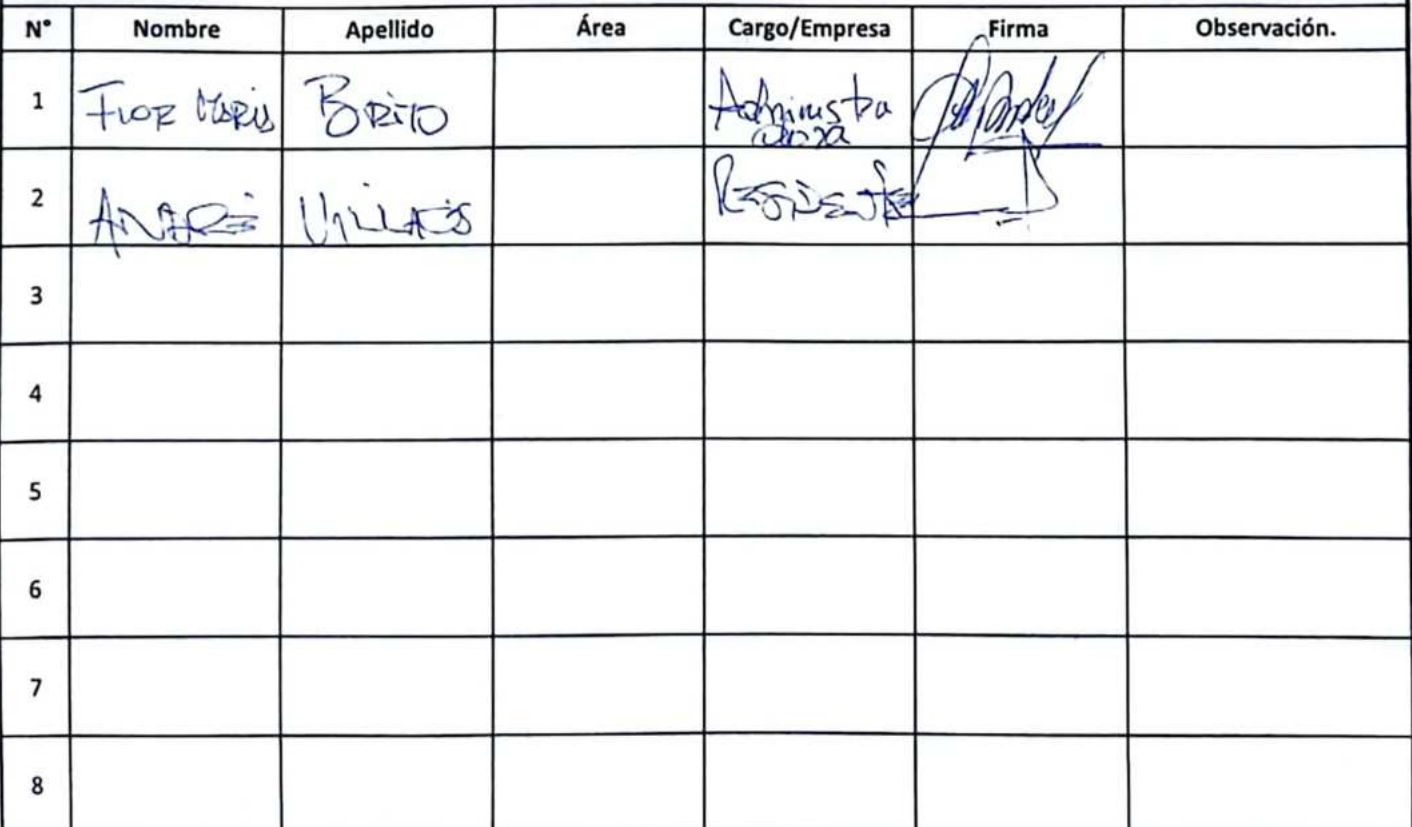 N° Nombre Apellido Área Cargo/Empresa Firma Observación.
1 FLOR MARIS BRITO Administra
dora
2 ANDRÉ RESIDENTE
3
4
5
6
7
8